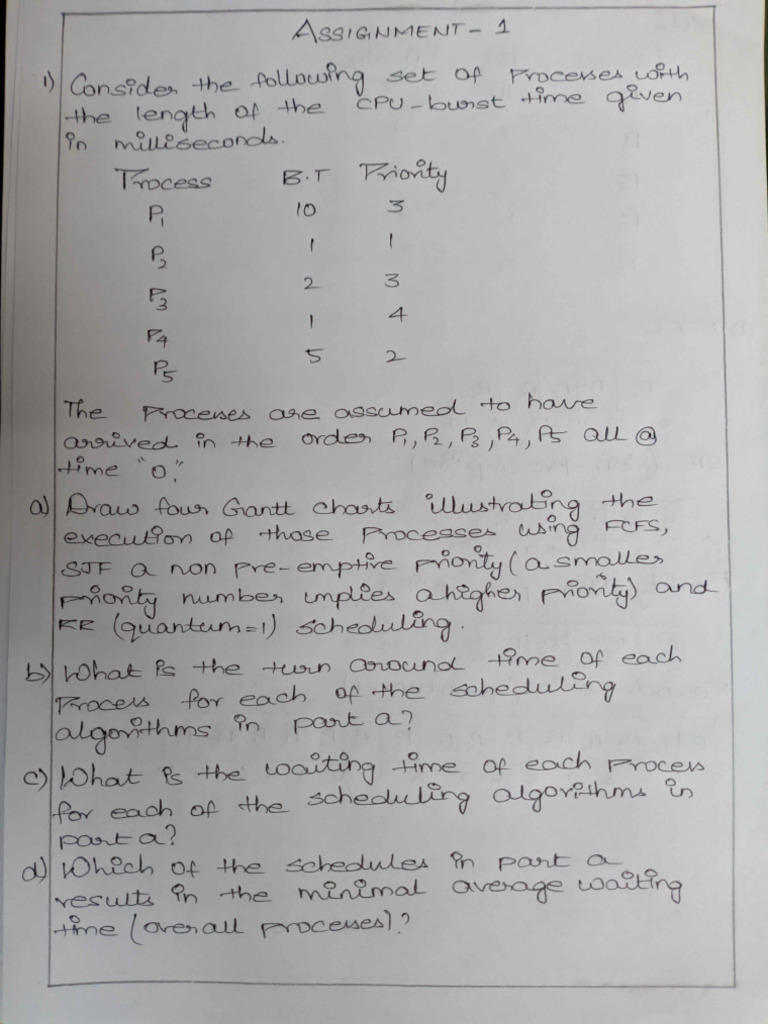 ASSIGNMENT - 1
1) Consider the following set of processes with
the length of the CPU-burst time given
in milliseconds.
Process B.T Priority
P1 10 3
P2 1 1
P3 2 3
P4 1 4
P5 5 2
The processes are assumed to have
arrived in the order P1, P2, P3, P4, P5 all @
time "0."
a) Draw four Gantt charts illustrating the
execution of those processes using FCFS,
SJF a non pre-emptive priority (a smaller
priority number implies a higher priority) and
RR (quantum=1) scheduling.
b) What is the turn around time of each
Process for each of the scheduling
algorithms in part a?
c) What is the waiting time of each process
for each of the scheduling algorithms in
part a?
d) Which of the schedules in part a
results in the minimal average waiting
time (over all processes)?